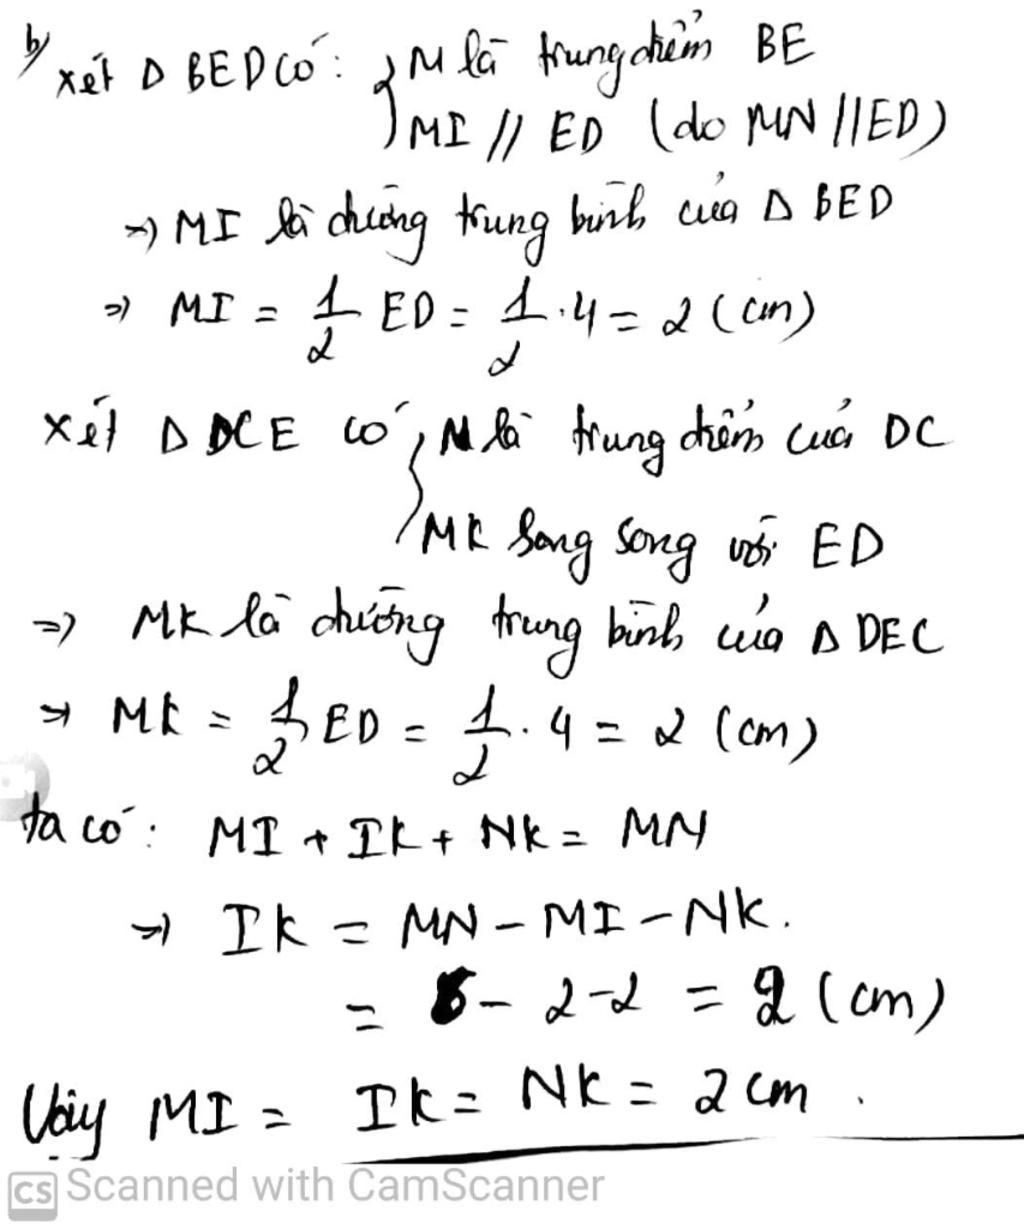 b/ xét Δ BED có: { M là trung điểm BE
MI // ED (do MN // ED)
=> MI là đường trung bình của Δ BED
=> MI = 1/2 ED = 1/2 . 4 = 2 (cm)
xét Δ DCE có { N là trung điểm của DC
MK song song với ED
=> MK là đường trung bình của Δ DEC
=> MK = 1/2 ED = 1/2 . 4 = 2 (cm)
ta có: MI + IK + NK = MN
=> IK = MN - MI - NK.
= 6 - 2 - 2 = 2 (cm)
Vậy MI = IK = NK = 2 cm .
CS Scanned with CamScanner